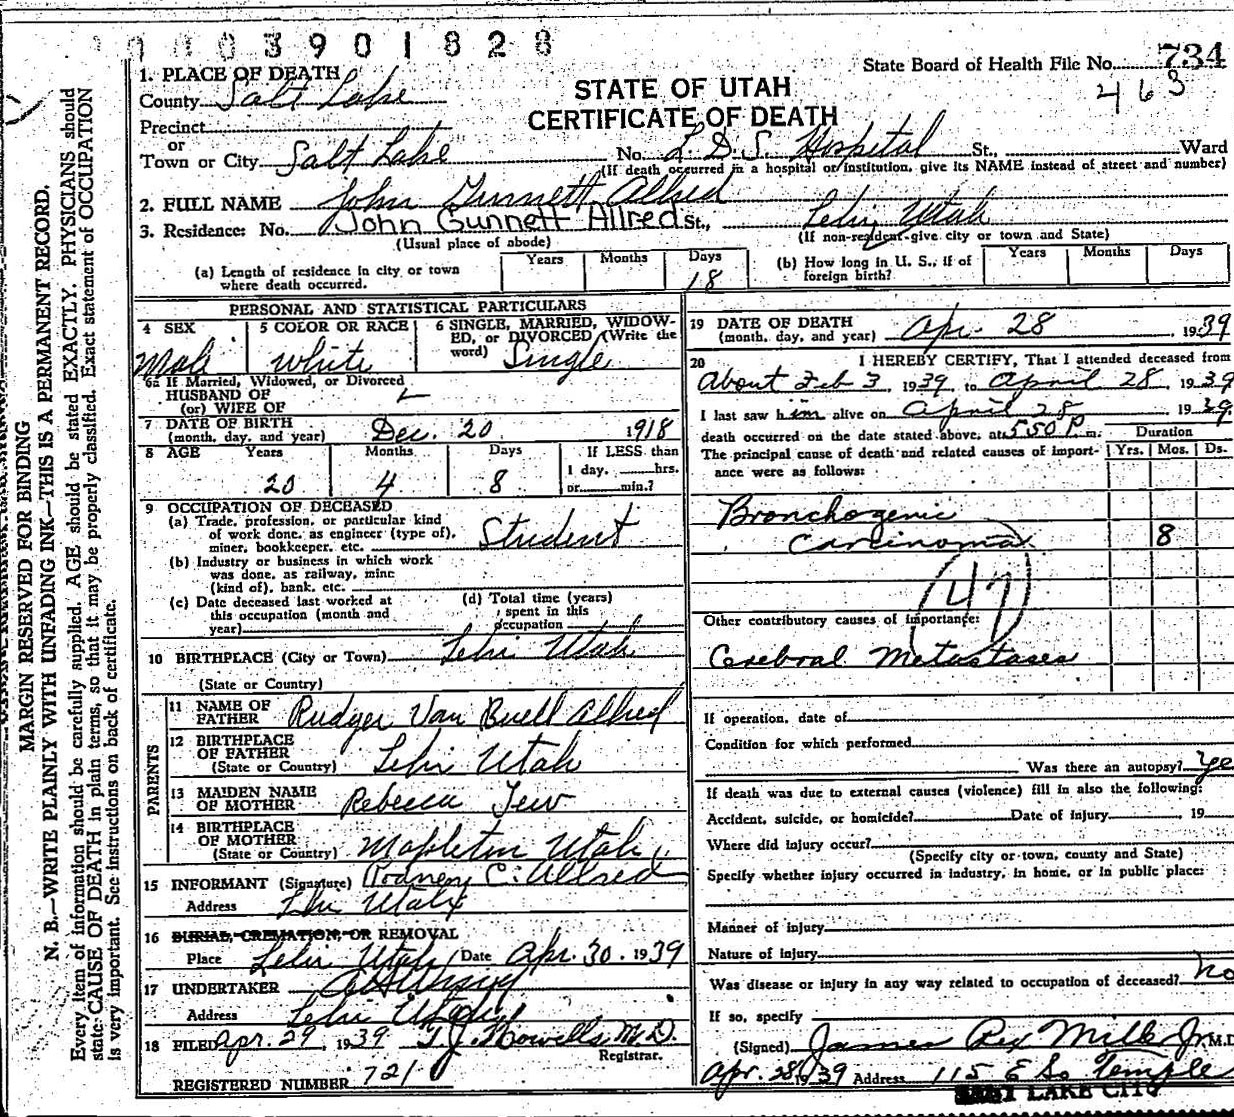 003901828
State Board of Health File No. 734
463
STATE OF UTAH
CERTIFICATE OF DEATH
MARGIN RESERVED FOR BINDING
N. B.—WRITE PLAINLY WITH UNFADING INK—THIS IS A PERMANENT RECORD.
Every item of information should be carefully supplied. AGE should be stated EXACTLY. PHYSICIANS should
state CAUSE OF DEATH in plain terms, so that it may be properly classified. Exact statement of OCCUPATION
is very important. See instructions on back of certificate.
1. PLACE OF DEATH
County Salt Lake
Precinct
or
Town or City Salt Lake No. L.D.S. Hospital St., Ward
(If death occurred in a hospital or institution, give its NAME instead of street and number)
2. FULL NAME John Gunnett Allred
3. Residence: No. John Gunnett Allred St., Lehi, Utah
(Usual place of abode) (If non-resident give city or town and State)
(a) Length of residence in city or town where death occurred. Years Months Days 18
(b) How long in U. S., if of foreign birth? Years Months Days
PERSONAL AND STATISTICAL PARTICULARS
4 SEX Male
5 COLOR OR RACE White
6 SINGLE, MARRIED, WIDOWED, or DIVORCED (Write the word) Single
6a If Married, Widowed, or Divorced
HUSBAND OF
(or) WIFE OF
7 DATE OF BIRTH
(month, day, and year) Dec. 20 1918
8 AGE Years Months Days If LESS than
1 day, hrs.
20 4 8 or min.?
9 OCCUPATION OF DECEASED
(a) Trade, profession, or particular kind
of work done, as engineer (type of), Student
miner, bookkeeper, etc.
(b) Industry or business in which work
was done, as railway, mine
(kind of), bank, etc.
(c) Date deceased last worked at
this occupation (month and
year)
(d) Total time (years)
spent in this
occupation
10 BIRTHPLACE (City or Town) Lehi Utah
(State or Country)
PARENTS
11 NAME OF
FATHER Rudger Van Buell Allred
12 BIRTHPLACE
OF FATHER
(State or Country) Lehi Utah
13 MAIDEN NAME
OF MOTHER Rebecca Tew
14 BIRTHPLACE
OF MOTHER
(State or Country) Mapleton Utah
15 INFORMANT (Signature) Rodney C. Allred
Address Lehi Utah
16 BURIAL, CREMATION, OR REMOVAL
Place Lehi Utah Date Apr. 30. 1939
17 UNDERTAKER
Address Lehi Utah
18 FILED Apr. 29, 1939 Howells M.D.
Registrar.
REGISTERED NUMBER 721
19 DATE OF DEATH
(month, day, and year) Apr. 28 1939
20 I HEREBY CERTIFY, That I attended deceased from
About Feb 3, 1939, to April 28, 1939
I last saw him alive on April 28 1939,
death occurred on the date stated above, at 5:50 P. m.
Duration
The principal cause of death and related causes of importance were as follows: Yrs. Mos. Ds.
Bronchogenic
Carcinoma 8
(47)
Other contributory causes of importance:
Cerebral Metastases
If operation, date of
Condition for which performed
Was there an autopsy? Yes
If death was due to external causes (violence) fill in also the following:
Accident, suicide, or homicide? Date of injury 19
Where did injury occur?
(Specify city or town, county and State)
Specify whether injury occurred in industry, in home, or in public place:
Manner of injury
Nature of injury
Was disease or injury in any way related to occupation of deceased? No
If so, specify
(Signed) James Rex Miller Jr. M.D.
Apr. 28 1939 Address 115 E So. Temple
LAKE CITY